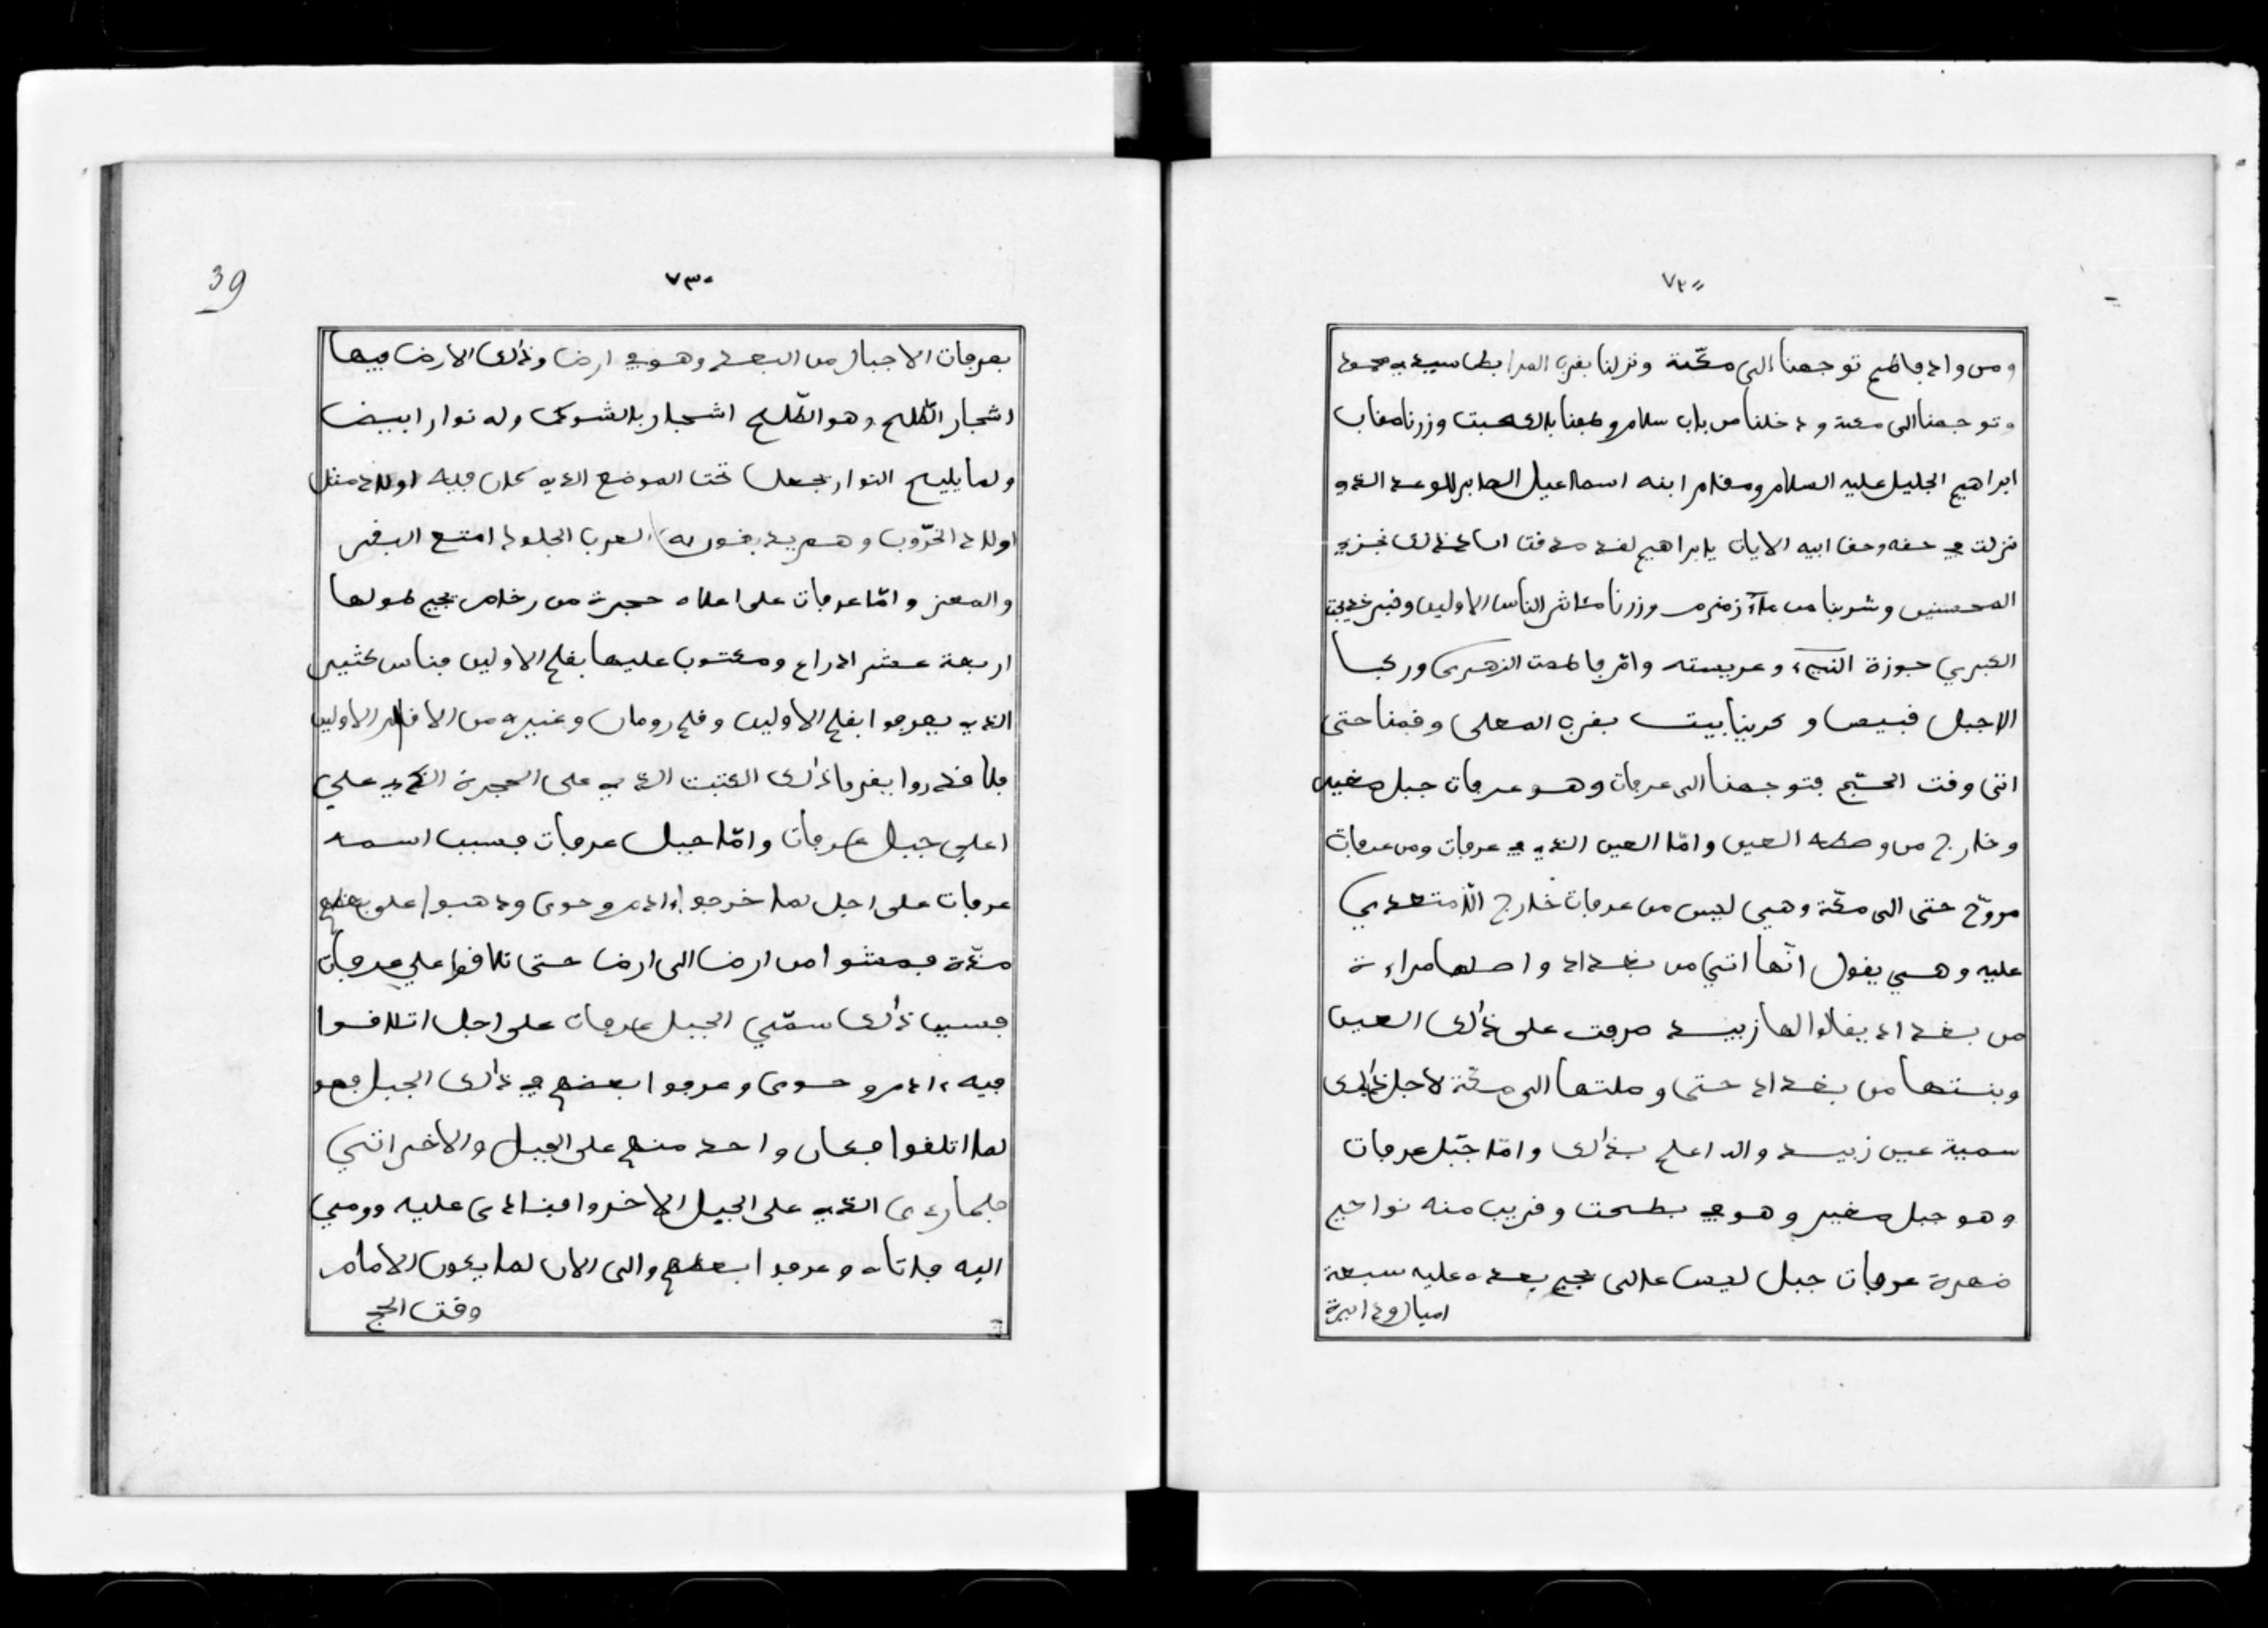 ٧٢٠
ومن واد فاطم توجهنا الى مكّة ونزلنا بقرب المرابط سيدي محمود
وتوجهنا الى مكة ودخلنا من باب سلام وطفنا بالكعبت وزرنا مقاب
ابراهيم الجليل عليه السلام ومقام ابنه اسماعيل الصابر للوعد الذي
نزلت في حقه وحق ابيه الايات يابراهيم لقد صدقت انا كذلك نجزي
المحسنين وشربنا من مآء زمزم وزرنا مئاثر الناس الاولين وقبر خديجة
الكبرى جوزة النبيء وعريسته وامّ فاطمت الزهرى وركبا
الاجبل قبيص وكرينا بيت بقرب المعلى وقمنا حتى
اتى وقت الحجّ فتوجهنا الى عرفات وهو عرفات جبل صغير
وخارج من وصطه العين وامّا العين الذي في عرفات ومن عرفات
مروّح حتى الى مكّة وهي ليس من عرفات خارج الّا متعدي
عليه وهي يقول انّها اتتي من بغداد واصلها مراءة
من بغداد يقالوا لها زبيد صرفت على ذالك العين
وبنتها من بغداد حتى وصلتها الى مكّة لاجل ذالك
سمية عين زبيد والله اعلم بذالك وامّا جبل عرفات
وهو جبل صغير وهو في بطحت وقريب منه نواحي
ضهرة عرفات جبل ليس عالى يجي بعده عليه سبعة
اميال ودايرة
39
٧٣٠
بعرفات الاجبال من البعد وهو في ارض وذالك الارض فيها
اشجار الطّلح وهو الطّلح اشجار بالشوك وله نوار ابيض
ولما يليح النوار يجعل تحت الموضع الذي كان فيه اولاد مثل
اولاد الخرّوب وهم يدبغون به العرب الجلود امتع البقر
والمعز وامّا عرفات على اعلاه حجرة من رخام يجي طولها
اربعة عشر ادراع ومكتوب عليها بقلم الاولين فناس كثير
الذي يعرفوا بقلم الاولين وقلم رومان وغيره من الاقلام الاولين
فلا قدروا يقروا ذالك الكتبت الذي على الحجرة الذي على
اعلى جبل عرفات وامّا جبل عرفات فسبب اسمه
عرفات على اجل لما خرجوا ءادم وحوى وذهبوا على بعضهم
مدّة فمشوا من ارض الى ارض حتى تلاقوا على عرفات
فسبب ذالك سمّي الجبل عرفات على اجل اتلاقوا
فيه ءادم وحوى وعرفوا بعضهم في ذالك الجبل فهو
لما اتلقوا فكان واحد منهم على الجبل والاخر اتى
فلما رءى الذي على الجبل الاخر وافنادى عليه وومي
اليه فاتاه وعرفوا بعضهم والى الان لما يكون الامام
وقت الحج